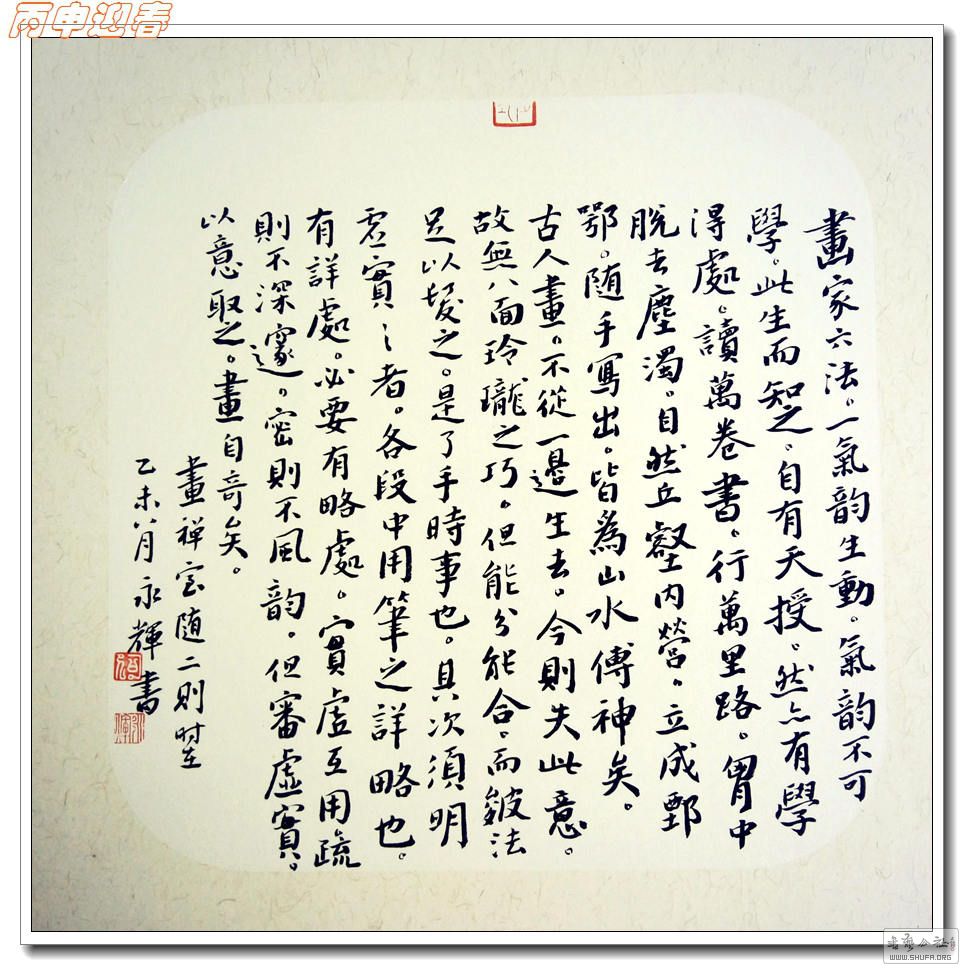 丙申迎春
畫家六法。一氣韵生動。氣韵不可
學。此生而知之。自有天授。然亦有學
得處。讀萬卷書。行萬里路。胷中
脫去塵濁。自然丘壑内營。立成鄄
鄂。随手寫出。皆為山水傳神矣。
古人畫。不從一邊生去。今則失此意。
故無八面玲瓏之巧。但能分能合。而皴法
足以發之。是了手時事也。其次須明
虛實〻者。各段中用筆之詳略也。
有詳處。必要有略處。實虛互用疏
則不深邃。密則不風韵。但審虛實。
以意取之。畫自奇矣。
畫禅室随二則时在
乙未八月永輝書
WWW.SHUFA.ORG